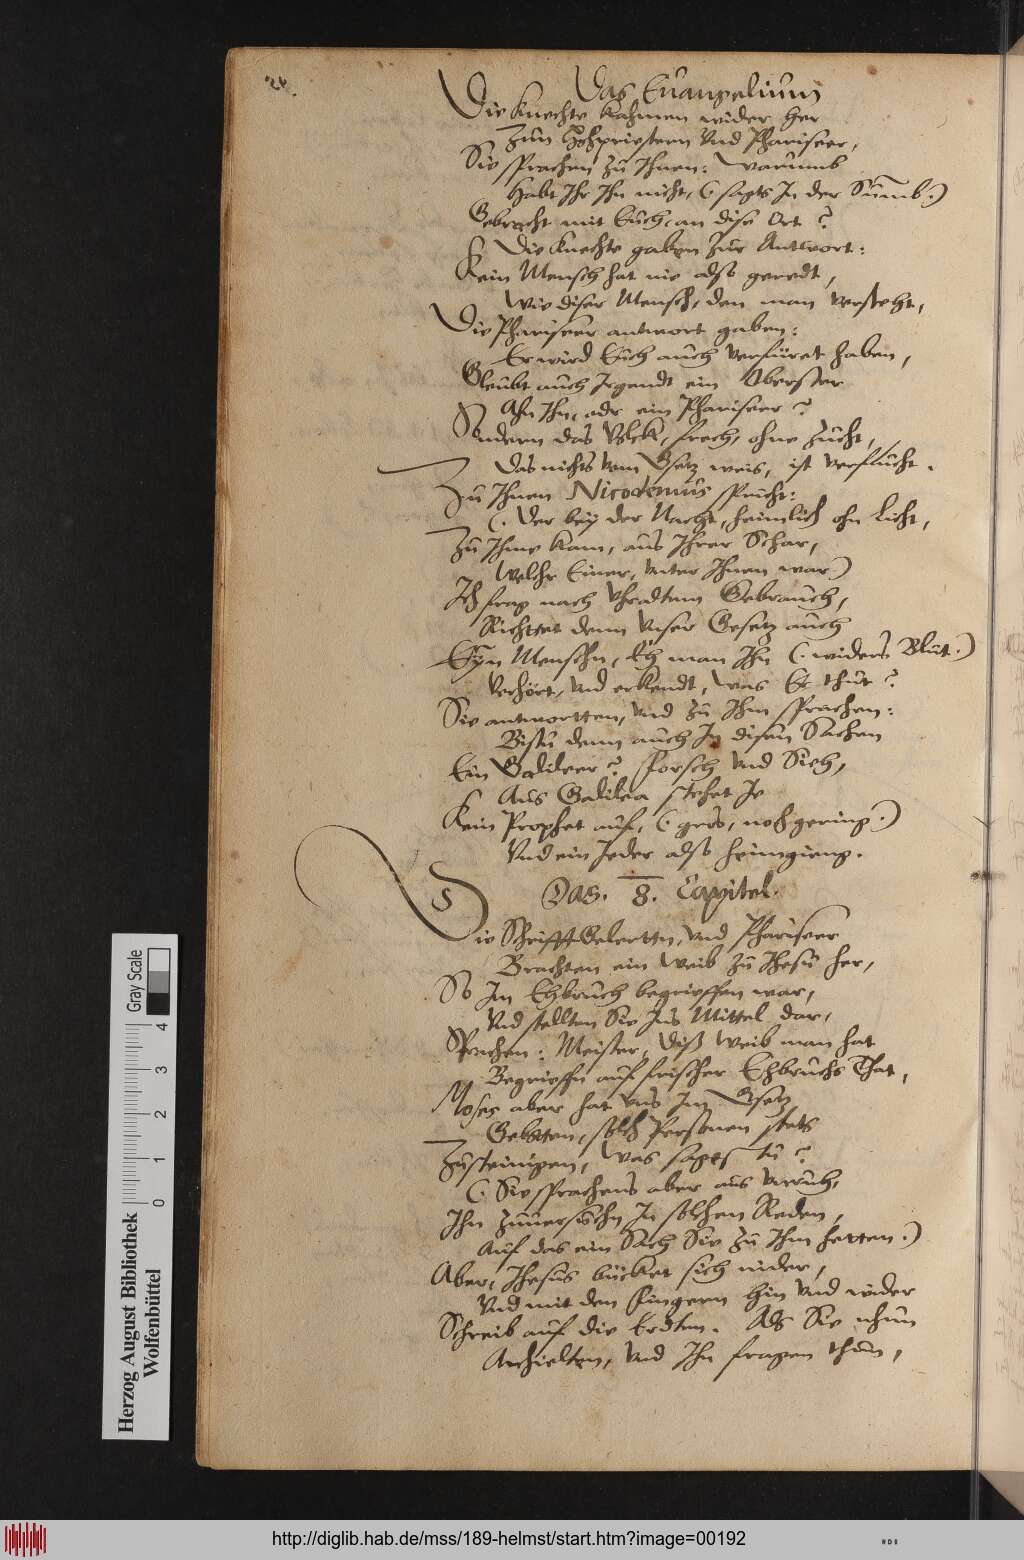 Das Euangelium
Die Knechte kahmen wider her
Zun Hohpriestern Vnd Phariseer,
Sie sprachen zu Ihnen: warumb
Habt Ihr Ihn nicht, (sagts In der Summb.)
Gebracht mit Euch, an dise Ort?
Die Knechte gaben zur Antwort:
Kein Mensch hat nie also geredt,
Wie diser Mensch, den man versteht,
Die Phariseer antwort gaben:
Er wird Euch auch verfüret haben,
Gleubt auch Irgendt ein Oberster
Ahn Ihn, odr ein Phariseer?
Sondern das Volck, frech, ohne Zucht,
Das nichts vom Gsetz weis, ist verflucht.
Zu Ihnen Nicodemus spricht:
(. Der bey der Nacht, heimlich ohn Licht,
Zu Ihme kam, aus Ihrer Schar,
Welchr Einer, vnter Ihnen war)
Ich frag nach Gebrauch,
Richttet denn Vnser Gesetz auch
Ein Menschn, Eh man Ihn (. widers Blut.)
Verhört, vnd erkendt, was Er thut?
Sie antwortten, vnd zu Ihm sprachen:
Bistu denn auch In disen Sachen
Ein Galileer? Forsch Vnd Sieh,
Aus Galilea stehet Je
Kein Prophet auf, (. gros, noch gering.)
Vnd ein Jeder also heimgieng.
Das. 8. Capitel.
Die SchrifftGelerttn, Vnd Phariseer
Brachten ein Weib zu Jhesu her,
So Im Ehbruch begrieffen war,
Vnd stellten Sie Ins Mittel dar,
Sprachen: Meister, Diß Weib man hat
Begrieffn auf frischer Ehbruchs That,
Moses aber hat vns Im Gsetz
Gebotten, solch Personen stets
Zusteinigen, Was sagest tu?
(. Sie sprachens aber aus
Ihn zuuersuchn In solchen Reden,
Auf das ein Sach Sie zu Ihm hetten.)
Aber, Jhesus bücket sich nider,
Vnd mit den Fingern hin Vnd wider
Schreib auf die Erdten. Als Sie nhun
Anhielten, Vnd Ihn fragen thun,
Herzog August Bibliothek
Wolfenbüttel
Gray Scale
0 1 2 3 4
http://diglib.hab.de/mss/189-helmst/start.htm?image=00192